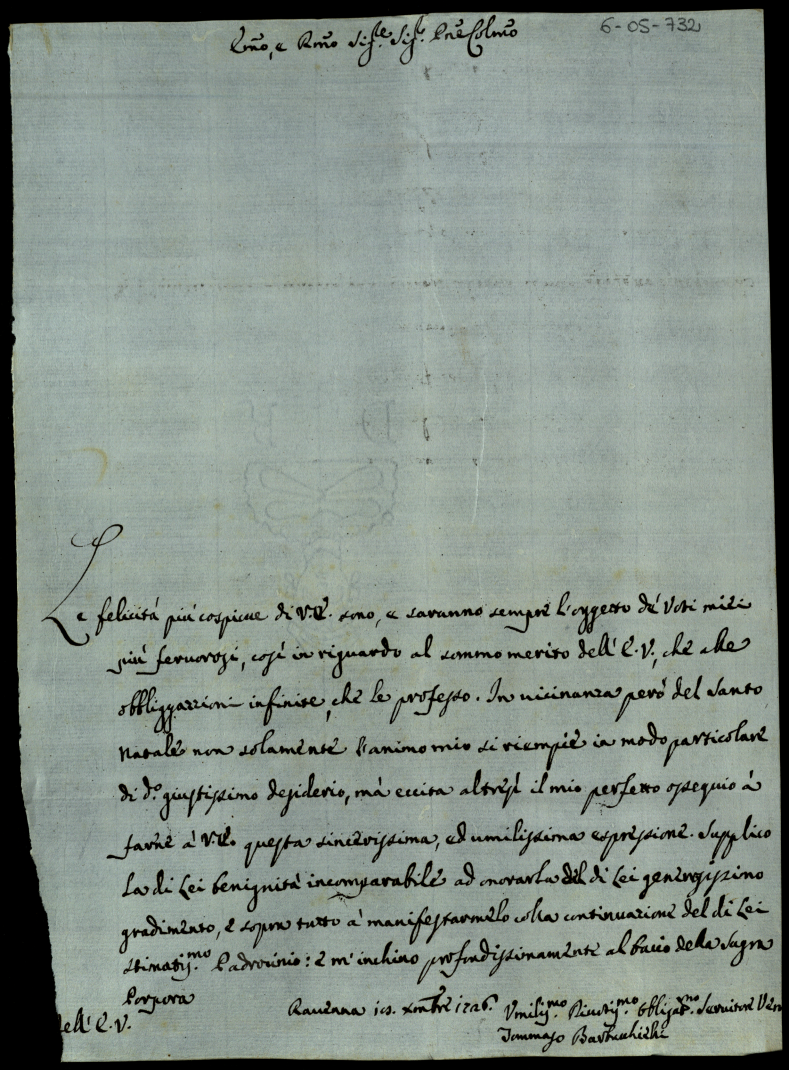 6-05-732
Emo, e Rmo Sig.re Sig.r Pne Colmo
Le felicità più cospicue di V.E. sono, e saranno sempre l'oggetto de' Voti miei
più fervorosi, così in riguardo al sommo merito dell'E.V., che alle
obbligazzioni infinite, che le professo. In vicinanza però del Santo
Natale non solamente l'animo mio si riempie in modo particolare
di d.o giustissimo desiderio, mà eccita altresì il mio perfetto ossequio à
farne à V.E. questa sincerissima, ed umilissima espressione. Supplico
la di Lei benignità incomparabile ad onorarla del di Lei generosissimo
gradimento, e sopra tutto à manifestarmelo colla continuazione del di Lei
stimatiss.mo Padrocinio: e m'inchino profondissimamente al bacio della Sagra
Porpora
Ravenna Xmbre 1726.
Umiliss.mo Divotiss.mo Obbligat.mo Servitore
ell'E.V.
Tommaso